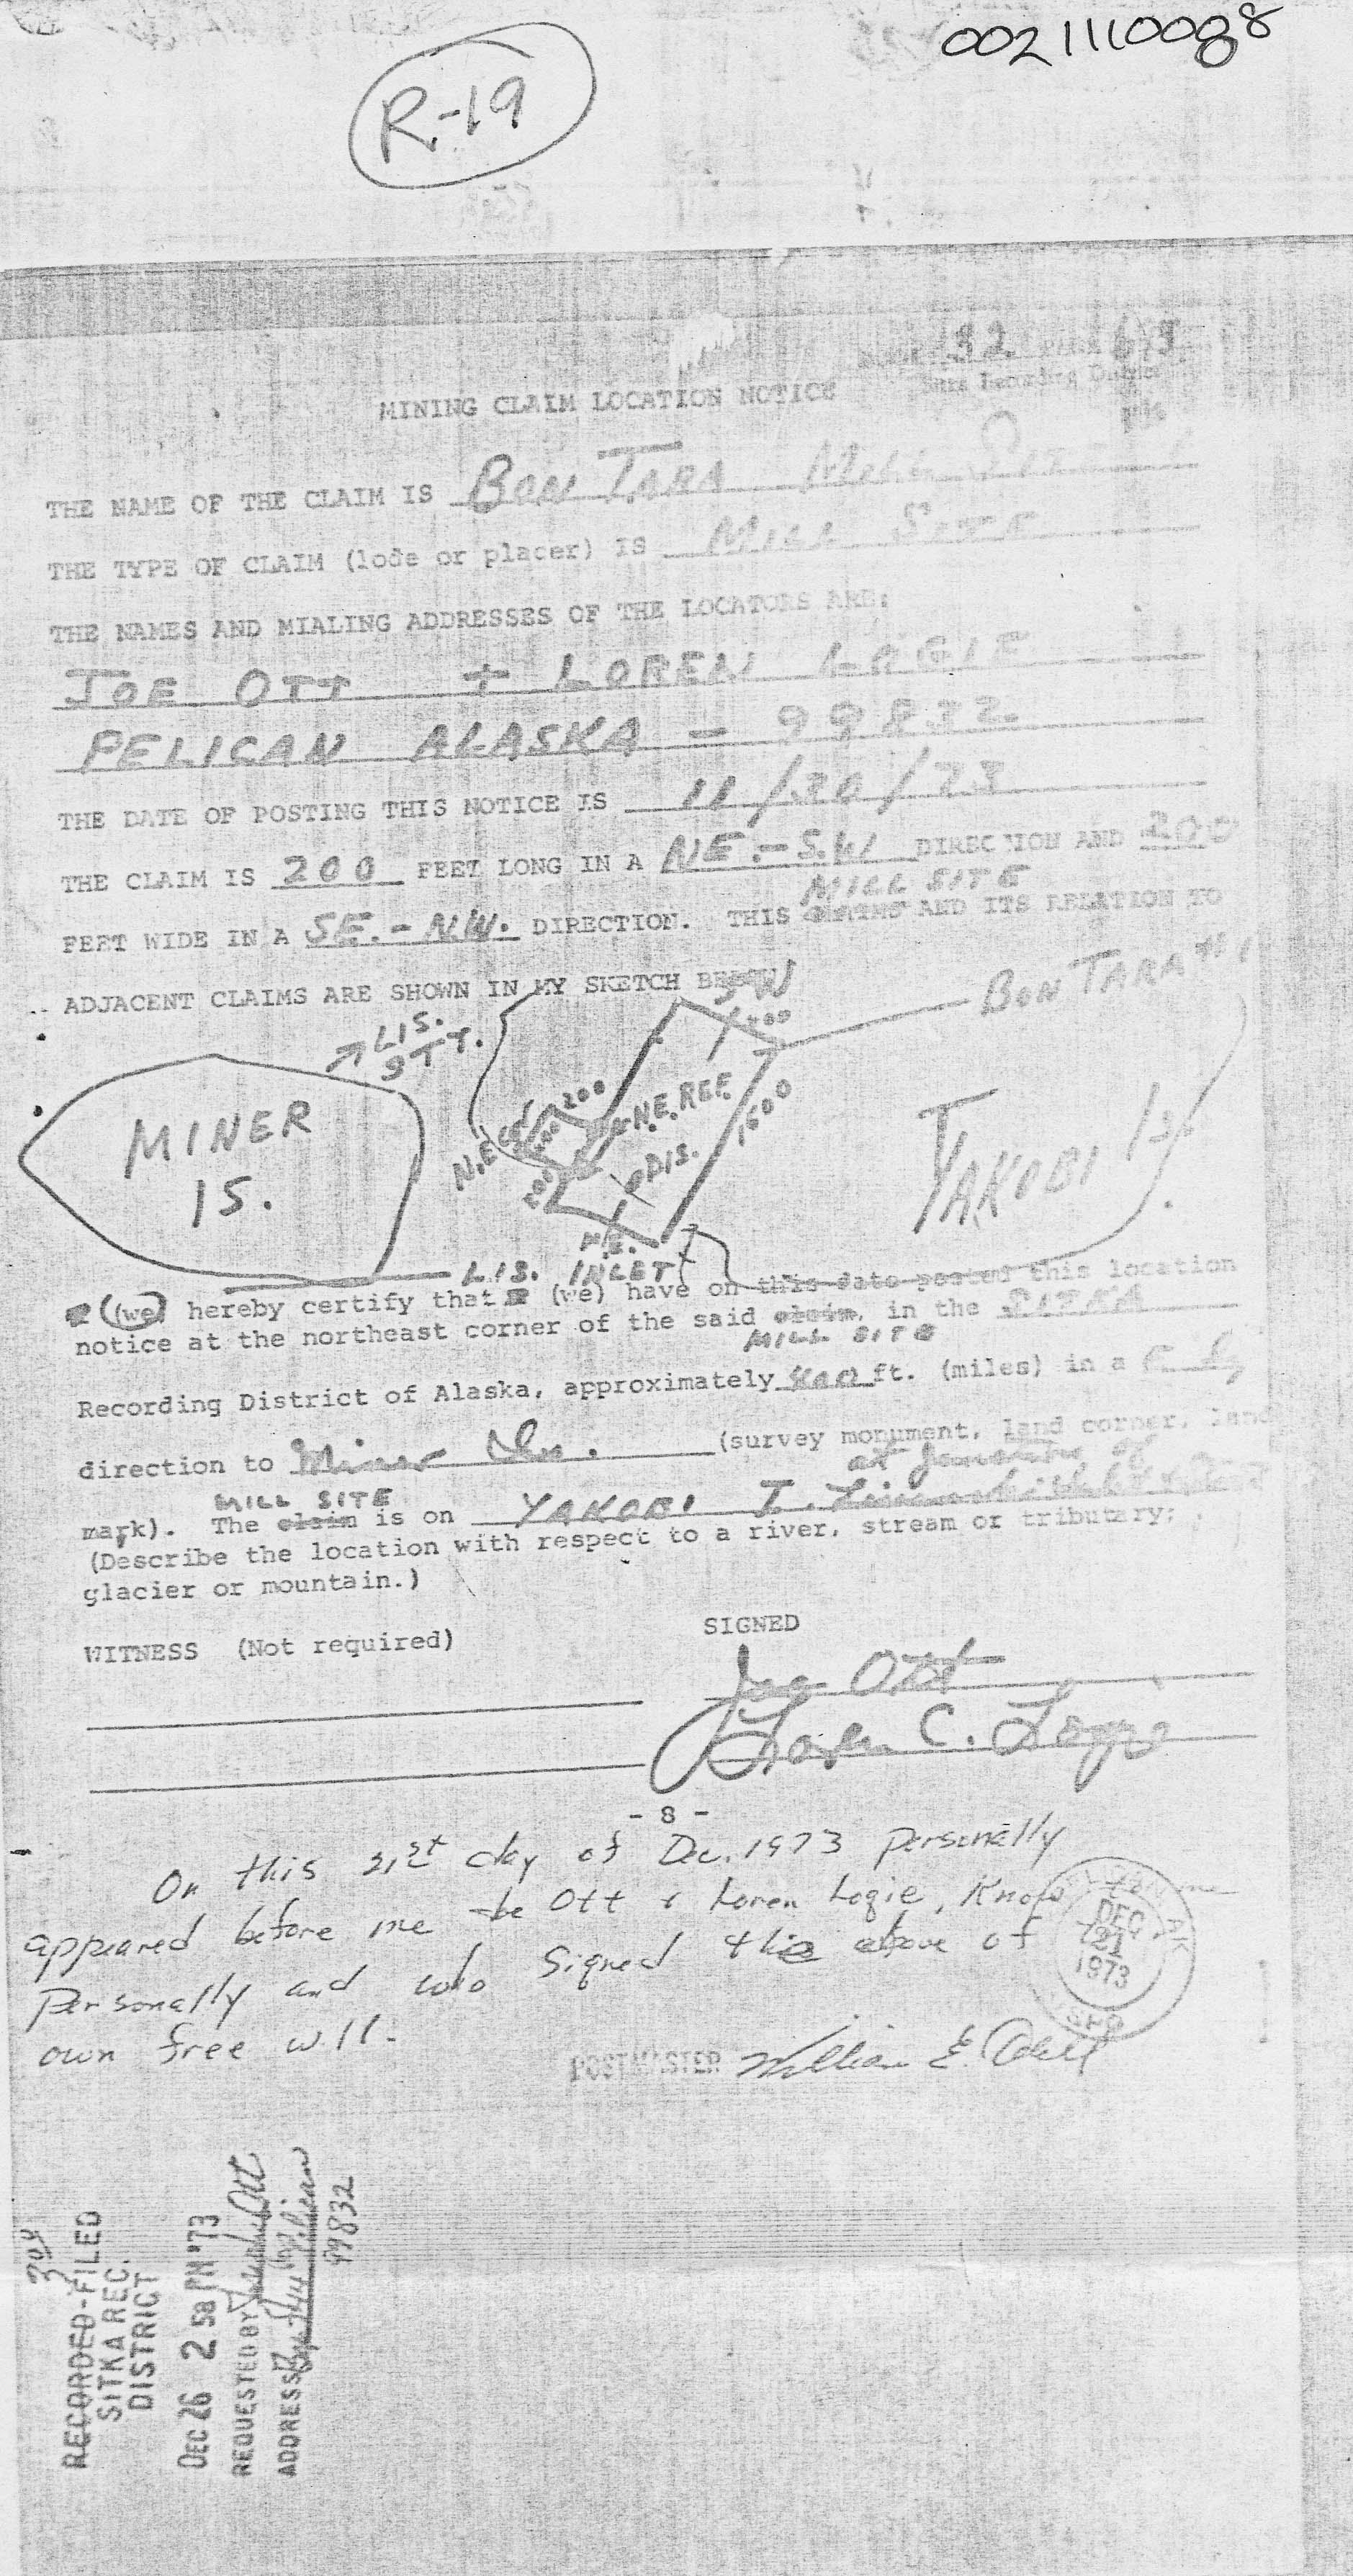 0021110088
R-19
32 PAGE
Recording District
MINING CLAIM LOCATION NOTICE
THE NAME OF THE CLAIM IS BON TARA
THE TYPE OF CLAIM (lode or placer) IS MILL SITE
THE NAMES AND MIALING ADDRESSES OF THE LOCATORS ARE:
JOE OTT + LOREN LOGIE
PELICAN ALASKA - 99832
THE DATE OF POSTING THIS NOTICE IS 11/30/73
THE CLAIM IS 200 FEET LONG IN A NE.-S.W DIRECTION AND 200
MILL SITE
FEET WIDE IN A SE.-N.W. DIRECTION. THIS CLAIMS AND ITS RELATION TO
ADJACENT CLAIMS ARE SHOWN IN MY SKETCH BELOW
SW
BON TARA #1
LIS.
STT.
MINER
IS.
200
N.E. REF.
1500
DIS.
200
YAKOBI Is.
LIS. INLET
(we) hereby certify that (we) have on this date posted this location
notice at the northeast corner of the said claim, in the SITKA
MILL SITE
Recording District of Alaska, approximately ft. (miles) in a
direction to Miner Is. (survey monument, land corner, land
MILL SITE
mark). The claim is on YAKOBI I.
(Describe the location with respect to a river, stream or tributary;
glacier or mountain.)
WITNESS (Not required)
SIGNED
Joe Ott
Loren C. Logie
- 8 -
On this 21st day of Dec. 1973 personally
appeared before me Joe Ott & Loren Logie, Known to me
personally and who signed this above of
own free will.
DEC
21
1973
AK
USPO
POSTMASTER William E.
RECORDED-FILED
SITKA REC.
DISTRICT
DEC 26 2 58 PM '73
REQUESTED BY Ott
ADDRESS Pelican
99832